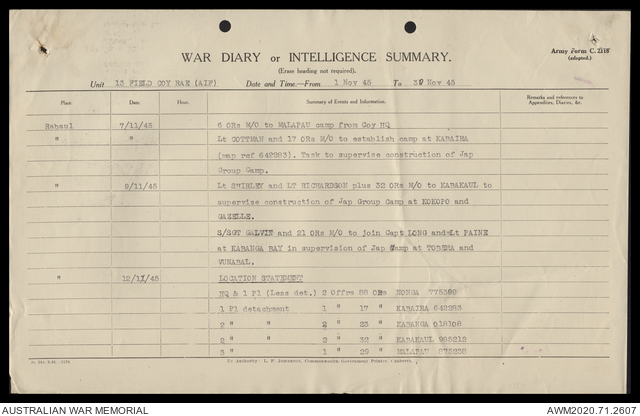 Army Form C. 2118
(adapted.)
WAR DIARY or INTELLIGENCE SUMMARY.
(Erase heading not required).
Unit 13 FIELD COY RAE (AIF) Date and Time.—From 1 Nov 45 To 30 Nov 45
Place. Date. Hour. Summary of Events and Information. Remarks and references to Appendices, Diaries, &c.
Rabaul 7/11/45 6 ORs M/O to MALAPAU camp from Coy HQ
" " Lt COTTMAN and 17 ORs M/O to establish camp at KABAIRA
(map ref 642283). Task to supervise construction of Jap
Group Camp.
" 9/11/45 Lt SHIRLEY and LT RICHARDSON plus 32 ORs M/O to KABAKAUL to
supervise construction of Jap Group Camp at KOKOPO and
GAZELLE.
S/SGT GALVIN and 21 ORs M/O to join Capt LONG and Lt PAINE
at KABANGA BAY in supervision of Jap Camp at TOBERA and
VUNABAL.
" 12/11/45 LOCATION STATEMENT
HQ & 1 Pl (Less det.) 2 Offrs 88 ORs NONGA 775399
1 Pl detachment 1 " 17 " KABAIRA 642283
2 " " 2 " 23 " KABANGA 018108
2 " " 2 " 32 " KABAKAUL 985212
3 " 1 " 29 " MALAPAU 875238
By Authority: L. F. Johnston, Commonwealth Government Printer, Canberra.
AUSTRALIAN WAR MEMORIAL AWM2020.71.2607